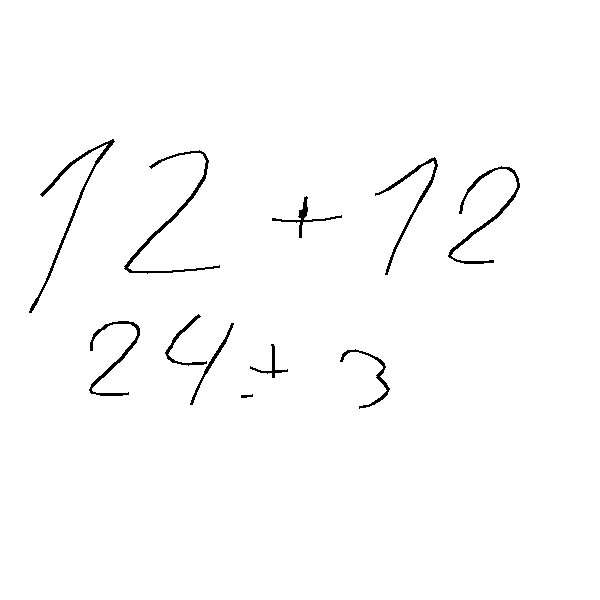 12 + 12
24 + 3